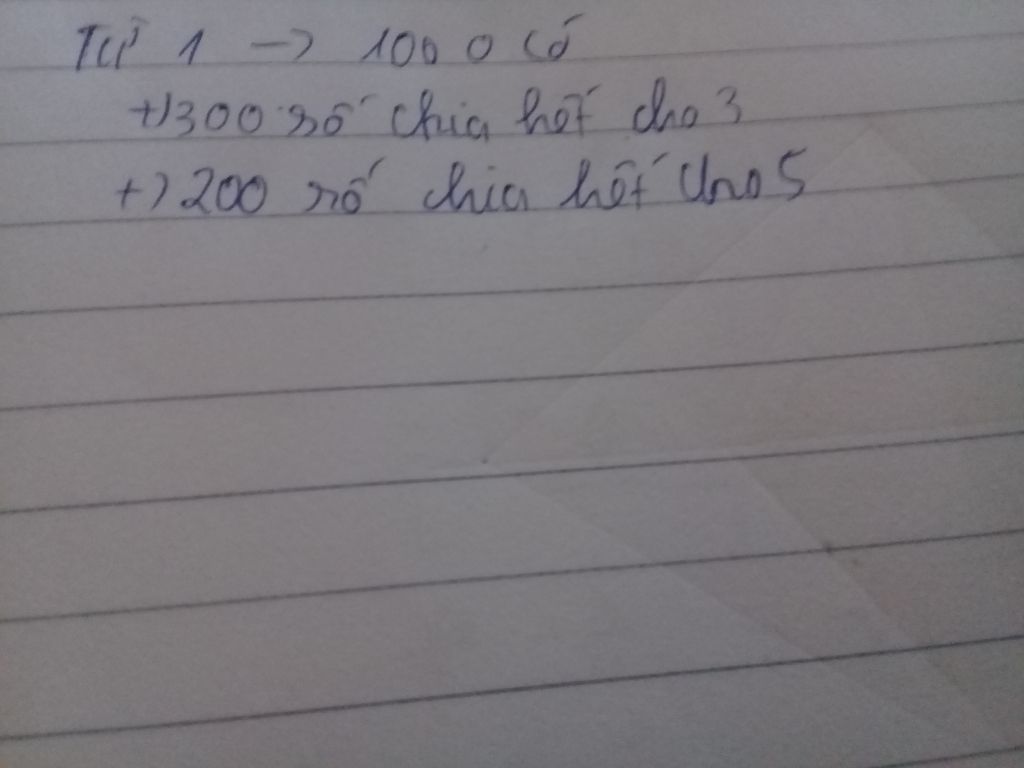 Từ 1 -> 1000 có
+)300 số chia hết cho 3
+) 200 số chia hết cho 5